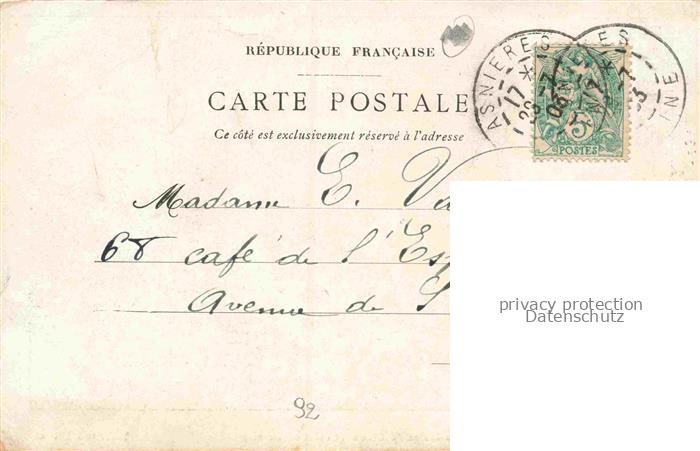 RÉPUBLIQUE FRANÇAISE
CARTE POSTALE
Ce côté est exclusivement réservé à l'adresse
ASNIERES
17
5
POSTES
Madame E. Va
68 café de l'Esp
Avenue de S
privacy protection
Datenschutz
92